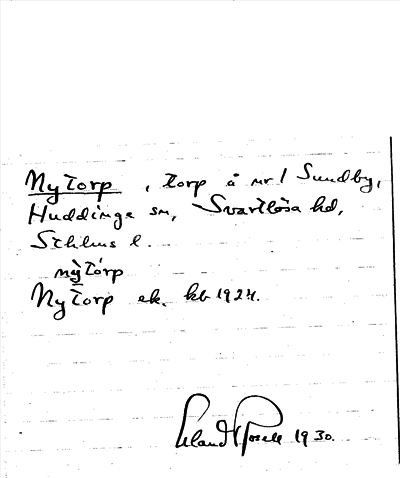 Nytorp, torp å nr 1 Sundby,
Huddinge sn, Svartlösa hd,
Sthlms l.
nỳtórp
Nytorp ek. kb 1924.
Erland Rosell 1930.